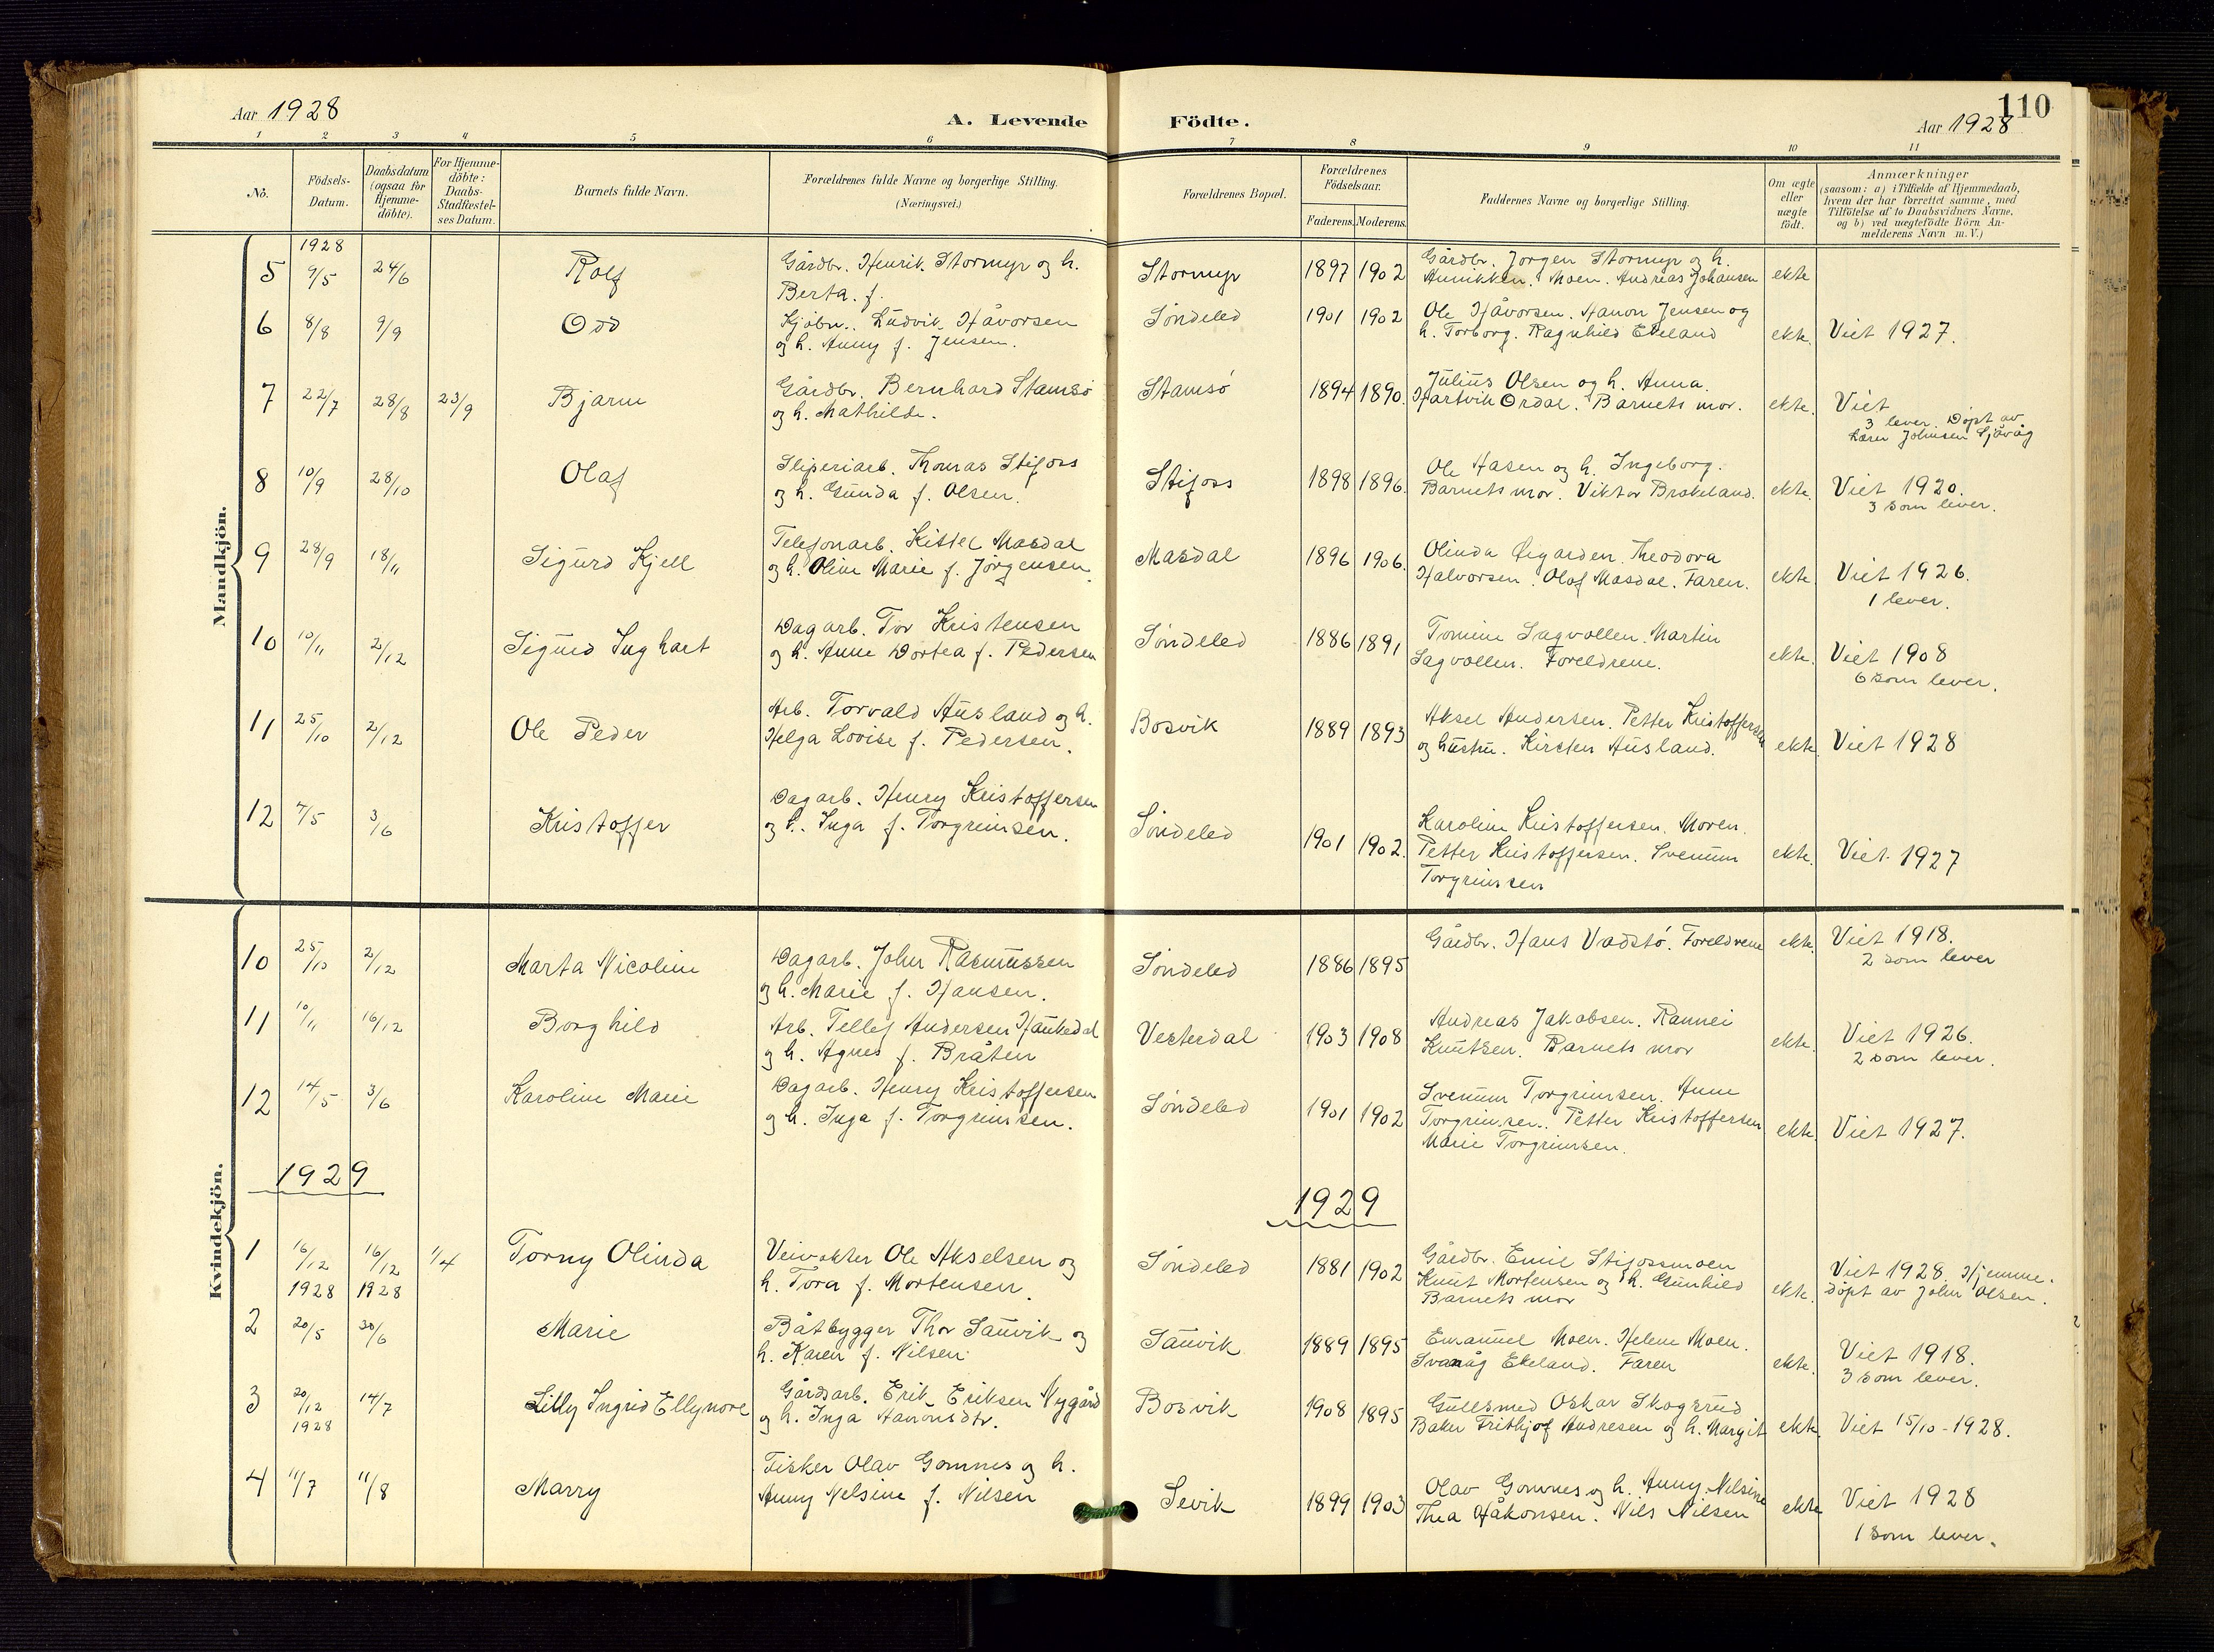 Aar 1928
A. Levende
Födte.
110
Aar 1928
1 2 3 4 5 6 7 8 9 10 11
No.
Födsels-
Datum.
Daabsdatum
(ogsaa for
Hjemme-
döbte).
For Hjemme-
döbte:
Daabs-
Stadfæstel-
ses Datum.
Barnets fulde Navn.
Forældrenes fulde Navne og borgerlige Stilling.
(Næringsvei.)
Forældrenes Bopæl.
Forældrenes
Födselsaar.
Faderens. Moderens.
Faddernes Navne og borgerlige Stilling.
Om ægte
eller
uægte
födt.
Anmærkninger
(saasom: a) i Tilfælde af Hjemmedaab,
hvem der har forrettet samme, med
Tilföielse af to Daabsvidners Navne,
og b) ved uægtefödte Börn An-
melderens Navn m. V.)
Mandkjön.
1928
5 9/5 24/6 Rolf
Gårdbr. Henrik Stormyr og h.
Berta. f.
Stormyr 1897 1902
Gårdbr. Jørgen Stormyr og h.
Annikken. Moen. Andreas Johansen
ekte
6 8/8 9/9 Odd
Kjøbm. Ludvik Håvorsen
og h. Anny f. Jensen.
Søndeled 1901 1902
Ole Håvorsen. Hanon Jensen og
h. Torborg. Ragnhild Ekeland
ekte. Viet 1927.
7 22/7 28/8 23/9 Bjarne
Gårdbr. Bernhard Stamsø
og h. Mathilde.
Stamsø 1894 1890.
Julius Olsen og h. Anna.
Hartvik Ordal. Barnets mor.
ekte. Viet
3 lever. Døpt av
Lærer Johnsen Sjåvåg
8 10/9 28/10 Olaf
Sliperiarb. Thomas Stifoss
og h. Gunda f. Olsen.
Stifoss 1898 1896.
Ole Aasen og h. Ingeborg.
Barnets mor. Viktor Brokeland.
ekte. Viet 1920.
3 som lever.
9 28/9 18/11 Sigurd Kjell
Telefonarb. Kittel Masdal
og h. Oline Marie f. Jørgensen.
Masdal 1896 1906.
Olinda Øigarden. Theodora
Halvorsen. Olaf Masdal. Faren.
ekte. Viet 1926.
1 lever.
10 10/11 2/12 Sigurd Inghart
Dagarb. Tor Kristensen
og h. Anne Dortea f. Pedersen
Søndeled 1886 1891
Tomine Sagvollen. Martin
Sagvollen. Foreldrene.
ekte. Viet 1908
6 som lever.
11 25/10 2/12 Ole Peder
Arb. Torvald Ausland og h.
Helga Lovise f. Pedersen.
Bosvik 1889 1893
Aksel Andersen. Petter Kristoffersen
og hustru. Kirsten Ausland.
ekte. Viet 1928
12 7/5 3/6 Kristoffer
Dagarb. Henry Kristoffersen
og h. Inga f. Torgrimsen.
Søndeled 1901 1902.
Karoline Kristoffersen. Moren.
Petter Kristoffersen. Svenum
Torgrimsen
ekte. Viet 1927
Kvindekjön.
10 25/10 2/12 Marta Nicoline
Dagarb. John Rasmussen
og h. Marie f. Hansen.
Søndeled 1886 1895
Gårdbr. Hans Vadstø. Foreldrene
ekte. Viet 1918.
2 som lever
11 10/11 16/12 Borghild
Arb. Tellef Andersen Haukedal
og h. Agnes f. Bråten
Vesterdal 1903 1908
Andreas Jakobsen. Rannei
Knutsen. Barnets mor
ekte. Viet 1926.
2 som lever.
12 14/5 3/6 Karoline Marie
Dagarb. Henry Kristoffersen
og h. Inga f. Torgrimsen.
Søndeled 1901 1902
Svenum Torgrimsen. Anne
Torgrimsen. Petter Kristoffersen
Marie Torgrimsen.
ekte. Viet 1927.
1929
1929
1 16/12 1928 16/12 1928 1/4 Torny Olinda
Veivokter Ole Akselsen og
h. Tora f. Mortensen.
Søndeled 1881 1902
Gårdbr. Emil Stifossmoen
Knut Mortensen og h. Gunhild
Barnets mor
ekte. Viet 1928. Hjemme-
døpt av John Olsen.
2 20/5 30/6 Marie
Båtbygger Thor Sauvik og
h. Karen f. Nilsen.
Sauvik 1889 1895
Emanuel Moen. Helene Moen.
Svanåg Ekeland. Faren
ekte. Viet 1918.
3 som lever.
3 20/12 1928 14/7 Lilly Ingrid Ellynore
Gårdsarb. Erik Eriksen Nygård
og h. Inga Aanonsdtr.
Bosvik 1908 1895
Gullsmed Oskar Skogsrud
Baker Frithjof Andresen og h. Margit
ekte. Viet 15/10-1928.
4 11/7 11/8 Marry
Fisker Olav Gomnes og h.
Anny Nelsine f. Nilsen
Sevik 1899 1903
Olav Gomnes og h. Anny Nilsine
Thea Håkonsen. Nils Nilsen
ekte Viet 1928
1 som lever.